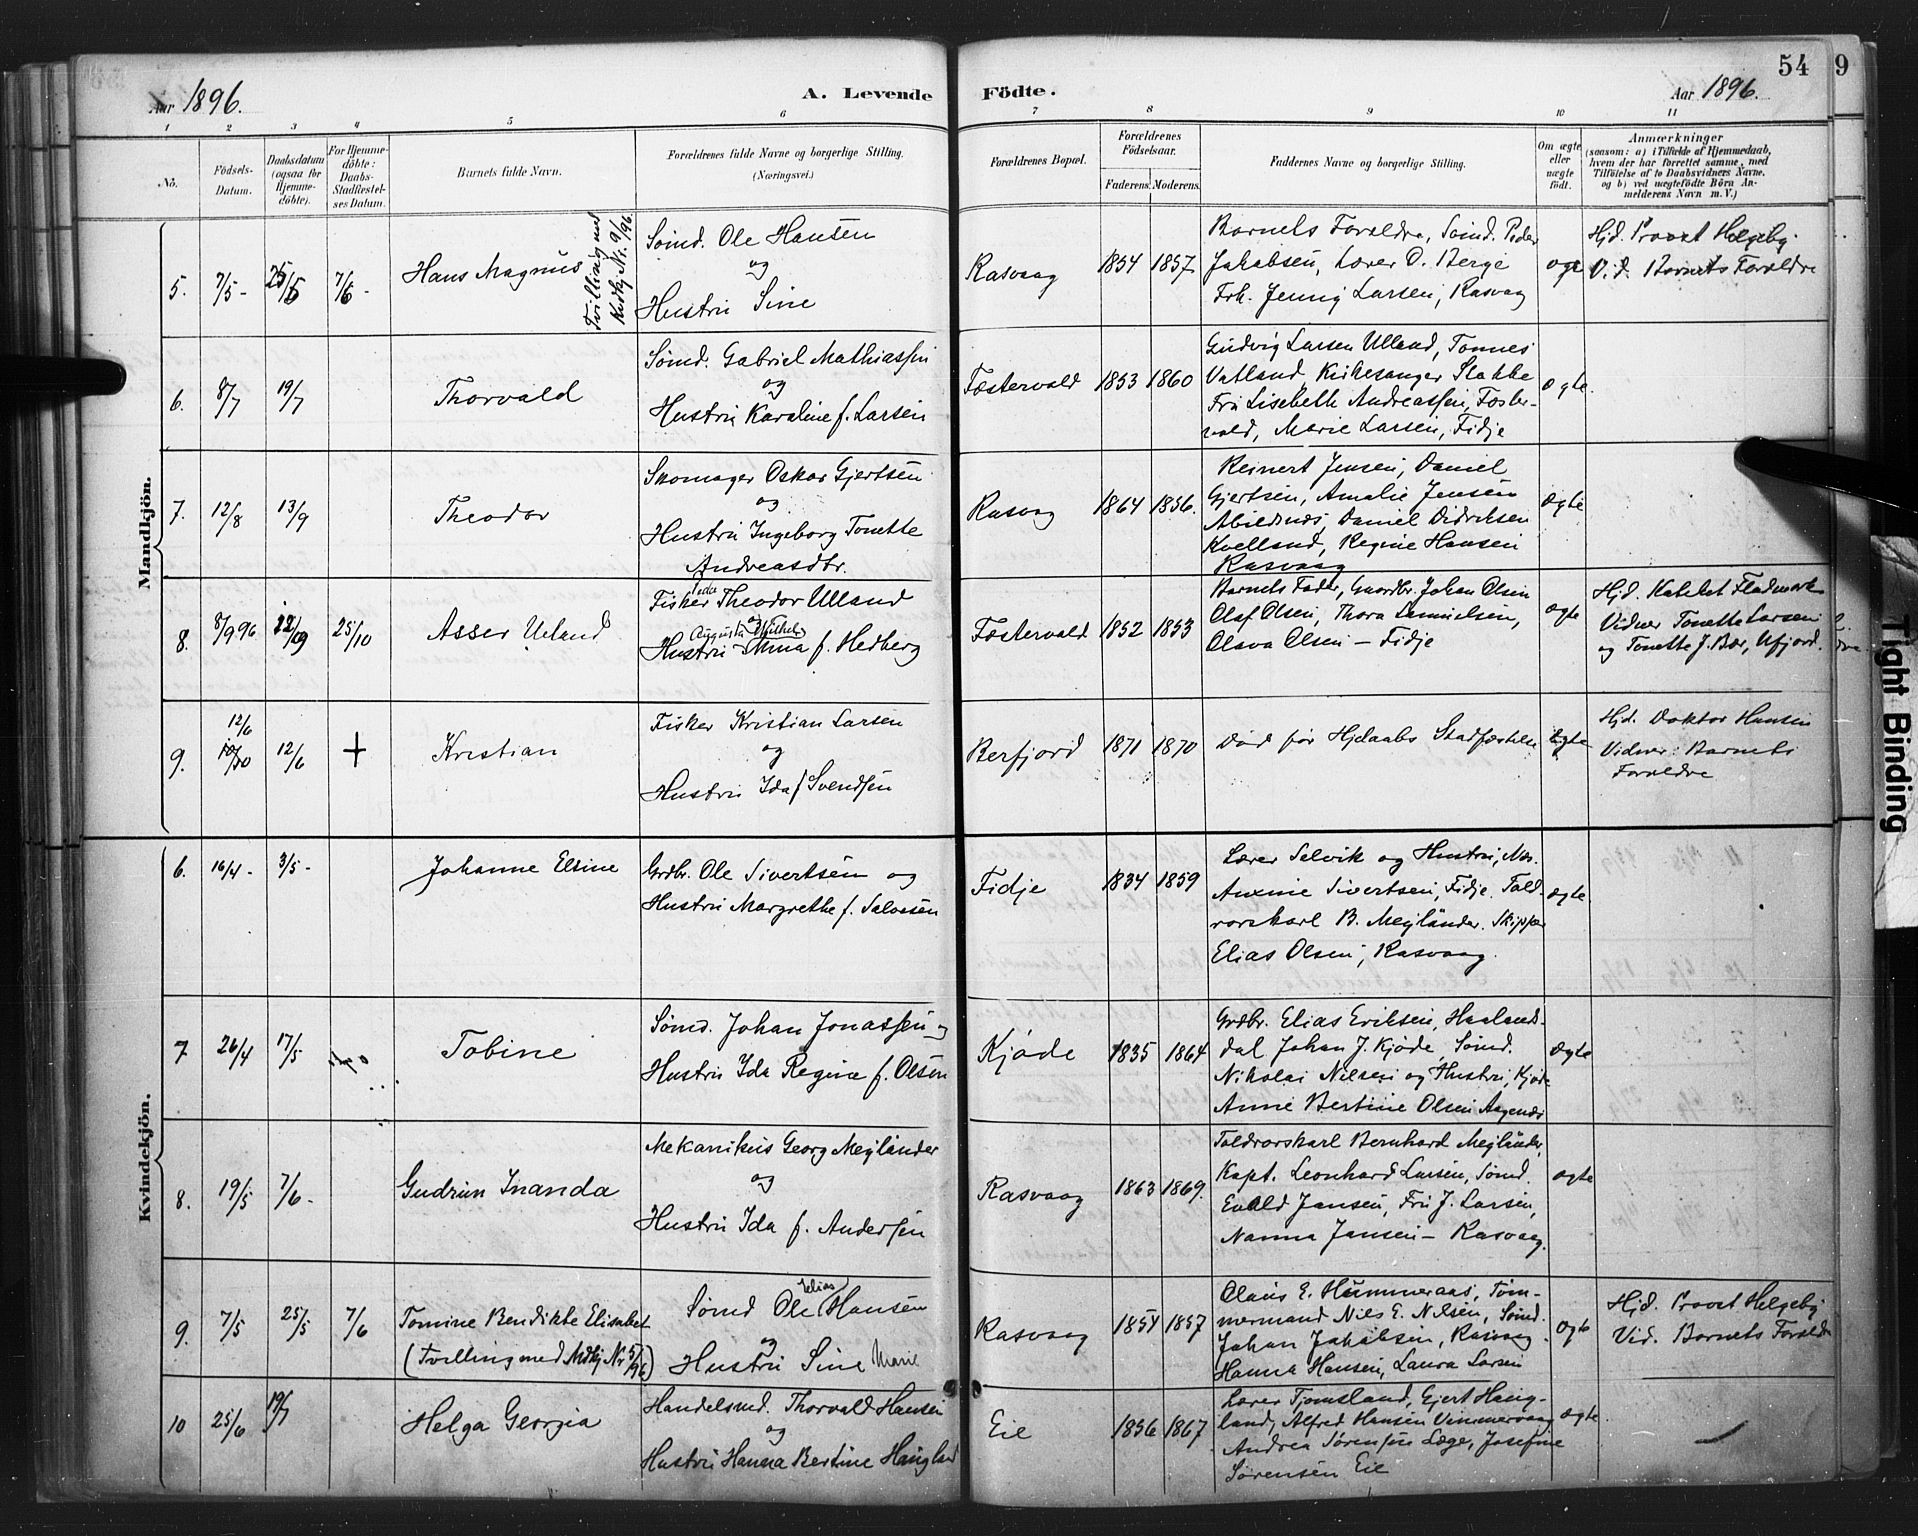 54
9
Aar 1896.
A. Levende
Födte.
Aar 1896.
1 2 3 4 5 6 7 8 9 10 11
No.
Födsels-
Datum.
Daabsdatum
(ogsaa for
Hjemme-
döbte).
For Hjemme-
döbte:
Daabs-
Stadfæstel-
ses Datum.
Barnets fulde Navn.
Forældrenes fulde Navne og borgerlige Stilling.
(Næringsvei.)
Forældrenes Bopæl.
Forældrenes
Födselsaar.
Faderens. Moderens.
Faddernes Navne og borgerlige Stilling.
Om ægte
eller
uægte
født.
Anmærkninger
(saasom: a) i Tilfælde af Hjemmedaab,
hvem der har forrettet samme, med
Tilföielse af to Daabsvidners Navne,
og b) ved uægtefödte Börn An-
melderens Navn m. V.)
Mandkjön.
5. 7/5 - 25/5 7/6 -
Hans Magnus
Tvilling med
Kvkj. Nr. 9/96.
Sømd. Ole Hansen
og
Hustru Sine
Rasvaag
1854 1857
Barnets Forældre, Sømd. Peder
Jakobsen, Lærer O. Berge
Frk. Jenny Larsen, Rasvaag
ægte
Hjd. Provst Helgeby.
Vid. Barnets Forældre
6. 8/7 19/7
Thorvald
Sømd. Gabriel Mathiassen
og
Hustru Karoline f. Larsen
Fæstervold
1853 1860
Ludvig Larsen Ulland, Tønnes
Vatland, Kirkesanger Stakke
Fru Lisebeth Andreassen, Fæster-
vold, Marie Larsen, Fidje
ægte.
7. 12/8 13/9
Theodor
Skomager Oskar Gjertsen
og
Hustru Ingeborg Tonette
Andreasdtr.
Rasvag
1864 1856.
Reinert Jensen, Daniel
Gjertsen, Amalie Jensen
Abildnæs, Daniel Didriksen
Kvelland, Regine Hansen
Rasvaag
ægte
8. 8/9 96 25/10
Asser Ueland
Fisker Theodor Ulland
og
Augusta Wilhel
Hustru mina f. Hedberg
Fæstervold
1852 1853
Barnets Fader, Gaardbr. Johan Olsen
Olaf Olsen, Thora Samuelsen,
Olava Olsen - Fidje
ægte
Hjd. Kateket Fladmark
Vidner Tonette Larsen
og Tonette J. Bær, Ufjord.
9. 12/6 12/6 +
Kristian
Fisker Kristian Larsen
og
Hustru Ida f Svendsen
Berfjord
1871 1870
Død før Hjdaabs Stadfæstelse
ægte
Hjd. Doktor Hansen
Vidner: Barnets
Forældre
Kvindekjön.
6. 16/4 - 3/5 -
Johanne Elsine
Grdbr. Ole Sivertsen og
Hustru Margrethe f. Salvesen
Fidje
1834 1859
Lærer Selvik og Hustru,
Anxine Sivertsen, Fidje. Told-
rorskarl B. Meyländer. Skipper
Elias Olsen, Rasvaag.
ægte
7 26/4 17/5
Tobine
Sømd. Johan Jonassen og
Hustru Ida Regine f. Olsen
Kjøde
1835 1864
Grdbr. Elias Eriksen, Haalands-
dal Johan J. Kjøde, Sømd.
Nikolai Nilsen og Hustru, Kjøde
Anne Bertine Olsen Aagenæs
ægte
8. 19/5 7/6 -
Gudrun Inanda
Mekanikus Georg Meyländer
og
Hustru Ida f. Andersen
Rasvaag
1863 1869.
Toldrorskarl Bernhard Meyländer,
Kapt. Leonhard Larsen, Sømd.
Evald Jansen, Fru J. Larsen,
Nanna Jansen - Rasvaag.
ægte
9. 7/5 25/5 7/6
Tomine Bendikte Elisabet
(Tvilling med Mdkj Nr 5/96)
Elias
Sømd Ole Hansen
og
Hustru Sine Marie
Rasvaag
1854 1857
Olaus E. Hummeraas, Tøm-
mermand Nils E. Nilsen, Sømd.
Johan Jakobsen, Rasvaag
Hanna Hansen, Laura Larsen
ægte
Hjd. Provst Helgeby
Vid. Barnets Forældre
10 25/6 19/7
Helga Georgia
Handelsmd. Thorvald Hansen
og
Hustru Hanna Bertine Haugland
Eie
1856 1867
Lærer Tjomsland, Gjert Haug-
land, Alfred Hansen Vimmervaag
Andrea Sørensen Læge, Josefine
Sørensen Eie
ægte
Tight Binding